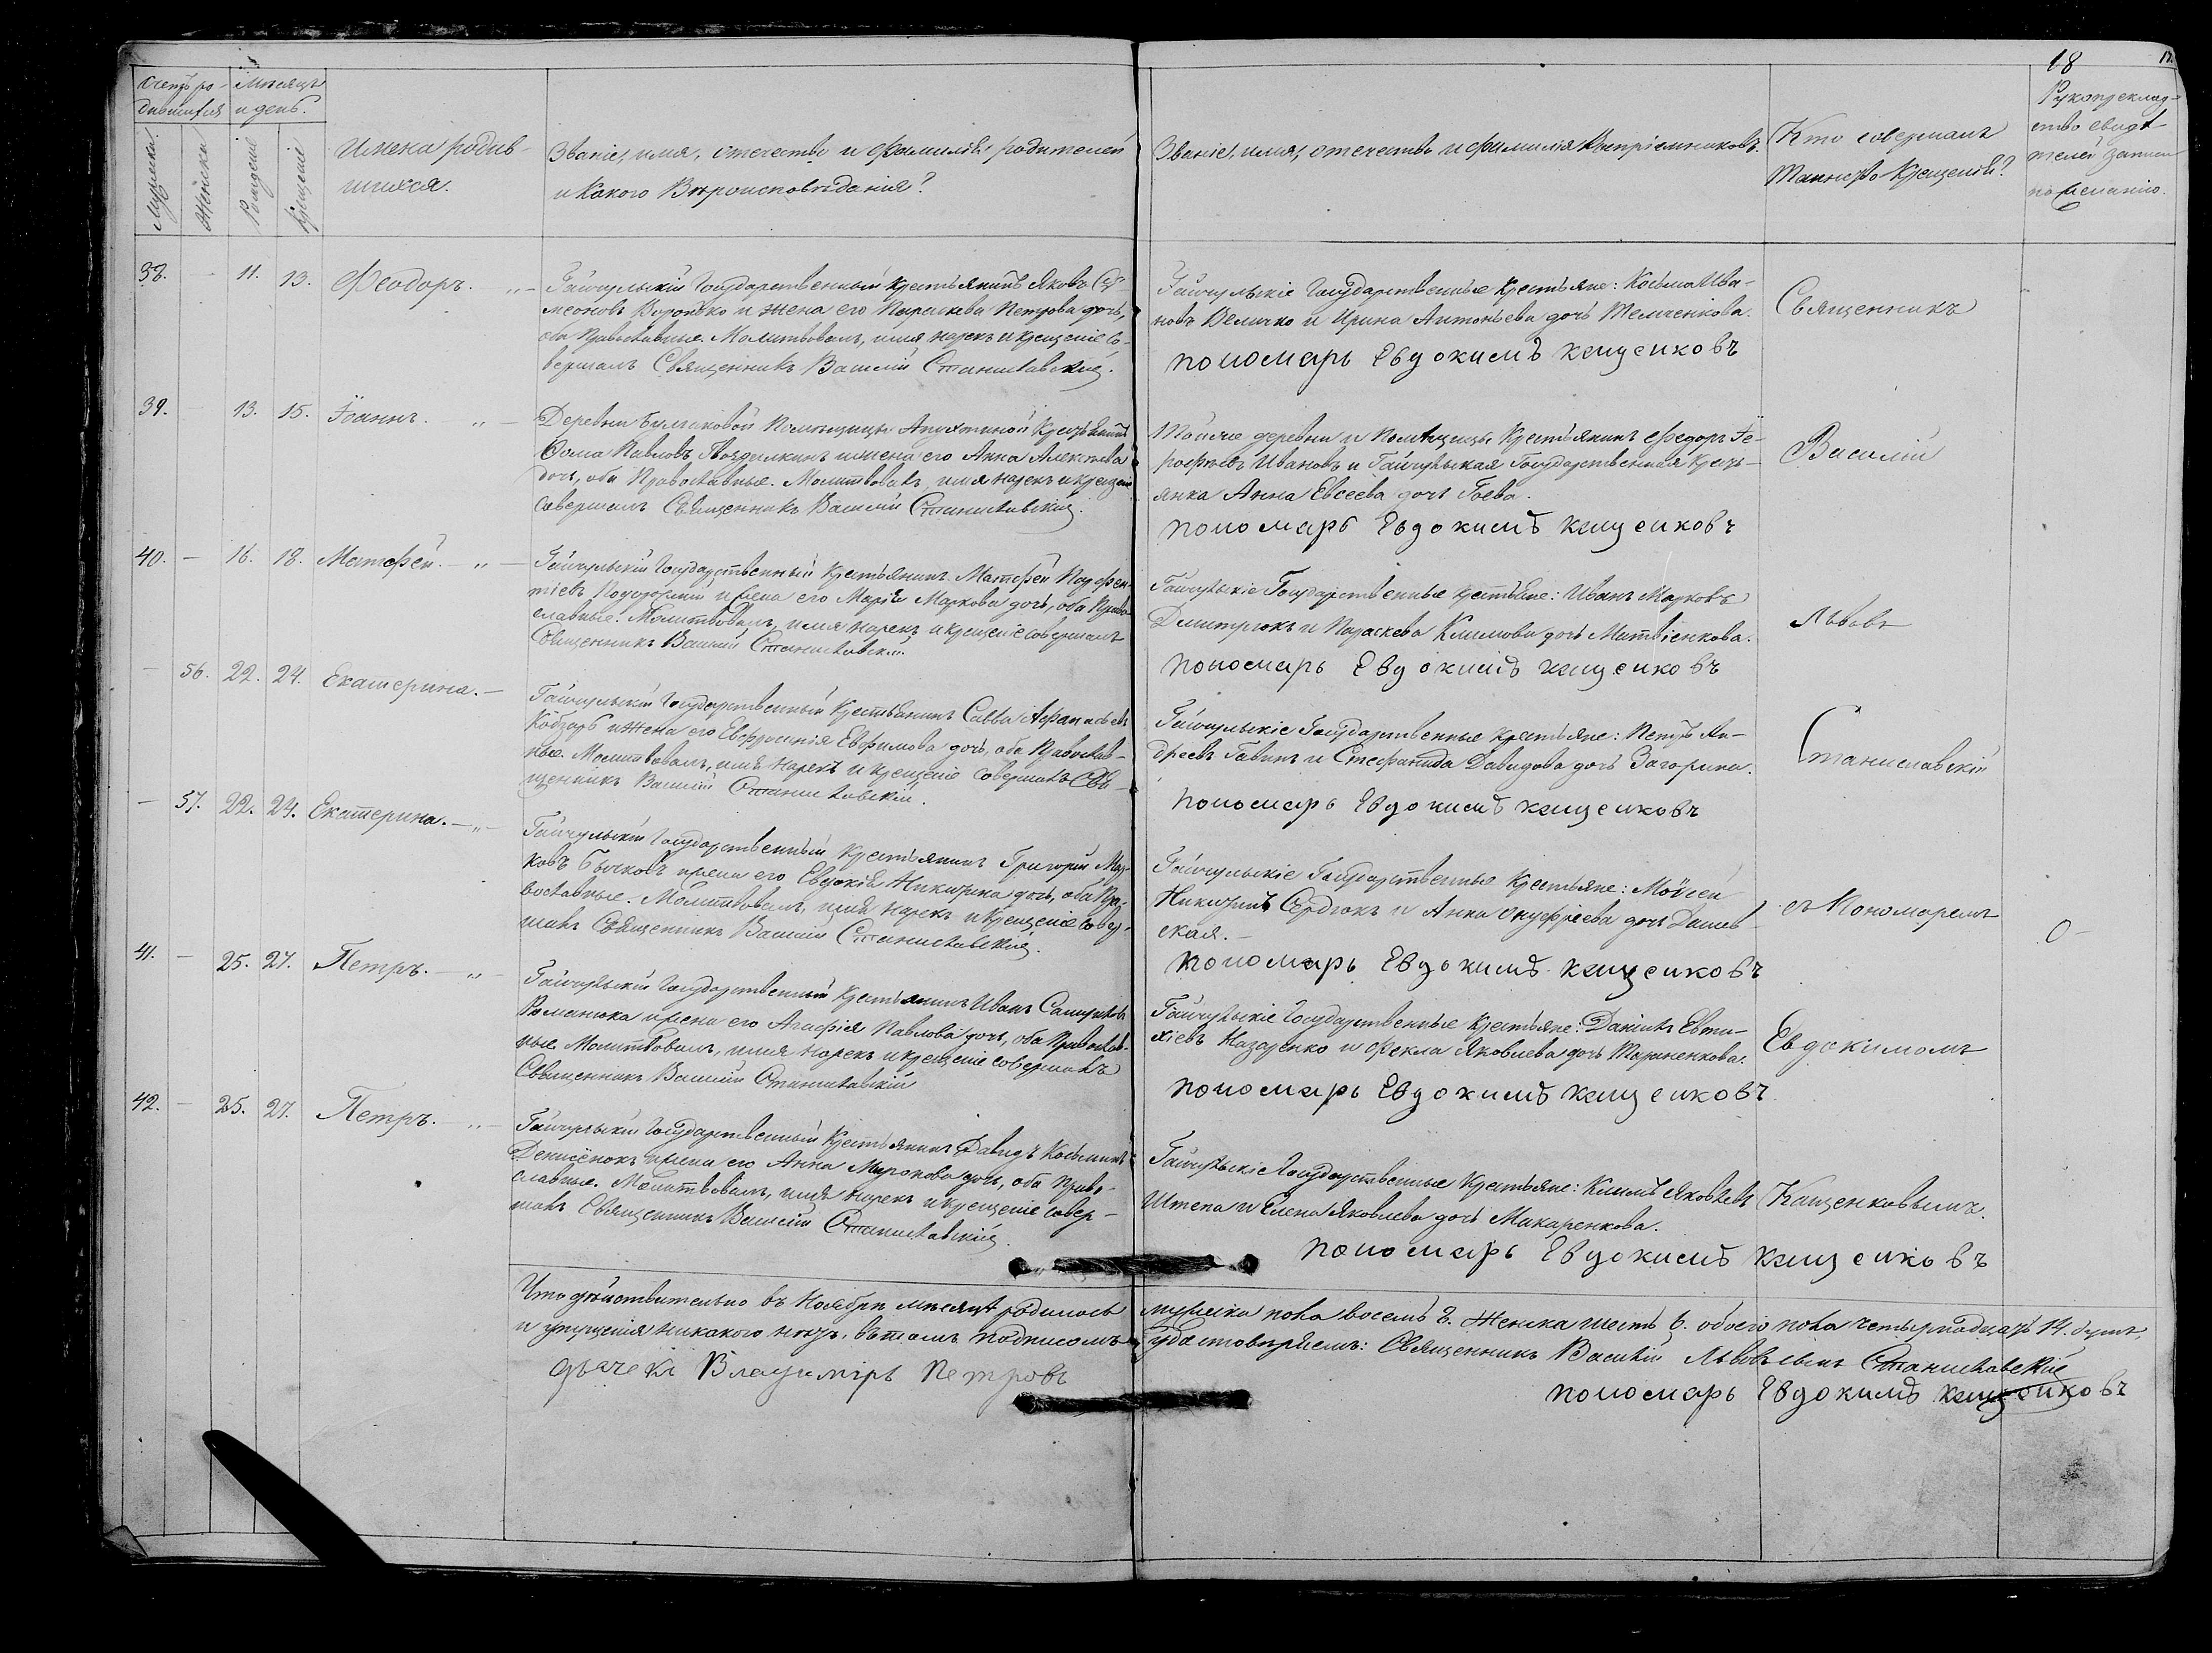 18
Счетъ ро-
дившихся
Мѣсяцъ
и день.
Мужеска.
Женска
Рожденіе
Крещеніе
Имена родив-
шихся.
Званіе, имя, отечество и фамилія родителей
и какого Вѣроисповѣданія?
Званіе, имя, отечество и фамилія воспріемниковъ.
Кто совершалъ
Таинство Крещенія?
Рукоприклад-
ство свидѣ-
телей записи
по желанію.
38. - 11. 13. Феодоръ.
Гайчульскій Государственный крестьянинъ Яковъ Си-
меоновъ и жена его Параскева Петрова дочь,
оба Православные. Молитвовалъ, имя нарекъ и крещеніе со-
вершалъ Священникъ Василій Станиславскій.
Гайчульскіе Государственные Крестьяне: Косьма Ива-
новъ Величко и Ирина Антоньева дочь Темченкова.
пономарь Евдокимъ кащенковъ
39. - 13. 15. Іоаннъ.
Деревни Помѣщицы Апухтиной Крестьянинъ
Фома Павловъ и жена его Анна Алексѣева
дочь, оба Православные. Молитвовалъ, имя нарекъ и крещеніе
совершалъ Священникъ Василій Станиславскій.
Той же деревни и Помѣщицы Крестьянинъ Федоръ Іе-
рофѣевъ Ивановъ и Гайчульская Государственная Крестъ-
янка Анна Евсеева дочь Гоева.
пономарь Евдокимъ кащенковъ
40. - 16. 18. Матфей.
Гайчульскій Государственный Крестьянинъ Матфей Парфен-
тіевъ и жена его Марія Маркова дочь, оба Право-
славные. Молитвовалъ, имя нарекъ и крещеніе совершалъ
Священникъ Василій Станиславскій.
Гайчульскіе Государственные крестьяне: Иванъ Марковъ
Дмитрюкъ и Параскева Климова дочь Матвіенкова.
пономарь Евдокимъ кащенковъ
- 56. 22. 24. Екатерина.
Гайчульскій Государственный Крестьянинъ Савва Афанасьевъ
Кобзарь и жена его Евфросинія Евфимова дочь, оба Православ-
ные. Молитвовалъ, имя нарекъ и крещеніе совершалъ Свя-
щенникъ Василій Станиславскій.
Гайчульскіе Государственные крестьяне: Петръ Ан-
дреевъ Гавишъ и Стефанида Давидова дочь Загорина.
пономарь Евдокимъ кащенковъ
- 57. 22. 24. Екатерина.
Гайчульскій Государственный крестьянинъ Григорій Мар-
ковъ Бычковъ и жена его Евдокія Никитина дочь, оба Пра-
вославные. Молитвовалъ, имя нарекъ и Крещеніе совер-
шалъ Священникъ Василій Станиславскій.
Гайчульскіе Государственные Крестьяне: Моисей
Никитинъ Сердюкъ и Анна Онуфріева дочь Дашев-
ская.
пономарь Евдокимъ кащенковъ
41. - 25. 27. Петръ.
Гайчульскій Государственный Крестьянинъ Иванъ
Романюка и жена его Агафія Павлова дочь, оба Православ-
ные. Молитвовалъ, имя нарекъ и крещеніе совершалъ
Священникъ Василій Станиславскій
Гайчульскіе Государственные Крестьяне: Даніилъ Евти-
хіевъ Назаренко и Фекла Яковлева дочь Мариненкова.
пономарь Евдокимъ кащенковъ
42. - 25. 27. Петръ.
Гайчульскій Государственный Крестьянинъ Давидъ Косьминъ
Денисёнокъ и жена его Анна Миронова дочь, оба Право-
славные. Молитвовалъ, имя нарекъ и крещеніе совер-
шалъ Священникъ Василій Станиславскій.
Гайчульскіе Государственные Крестьяне: Климъ Яковлевъ
Штепа и Елена Яковлева дочь Макаренкова.
пономарь Евдокимъ кащенковъ
Священникъ
Василій
Львовъ
Станиславскій
съ Пономаремъ
Евдокимомъ
Кащенковымъ.
Что дѣйствительно въ Ноябрѣ мѣсяцѣ родилось мужеска пола восемь 8. Женска шесть 6. обоего пола четырнадцать 14. душъ,
и упущенія никакого нѣтъ, въ томъ подписомъ удостовѣряемъ: Священникъ Василій Львовъ сынъ Станиславскій
дьячекъ Владиміръ Петровъ
пономарь Евдокимъ кащенковъ